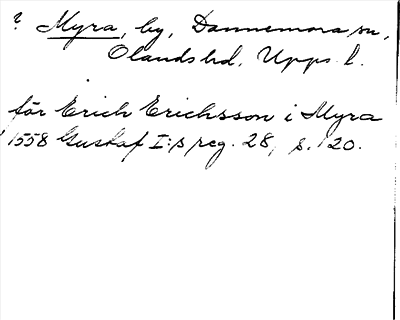 ? Myra, by, Dannemora sn,
Olands hd, Upps. l.
för Erich Erichsson i Myra
1558 Gustaf I:s reg. 28, s. 120.